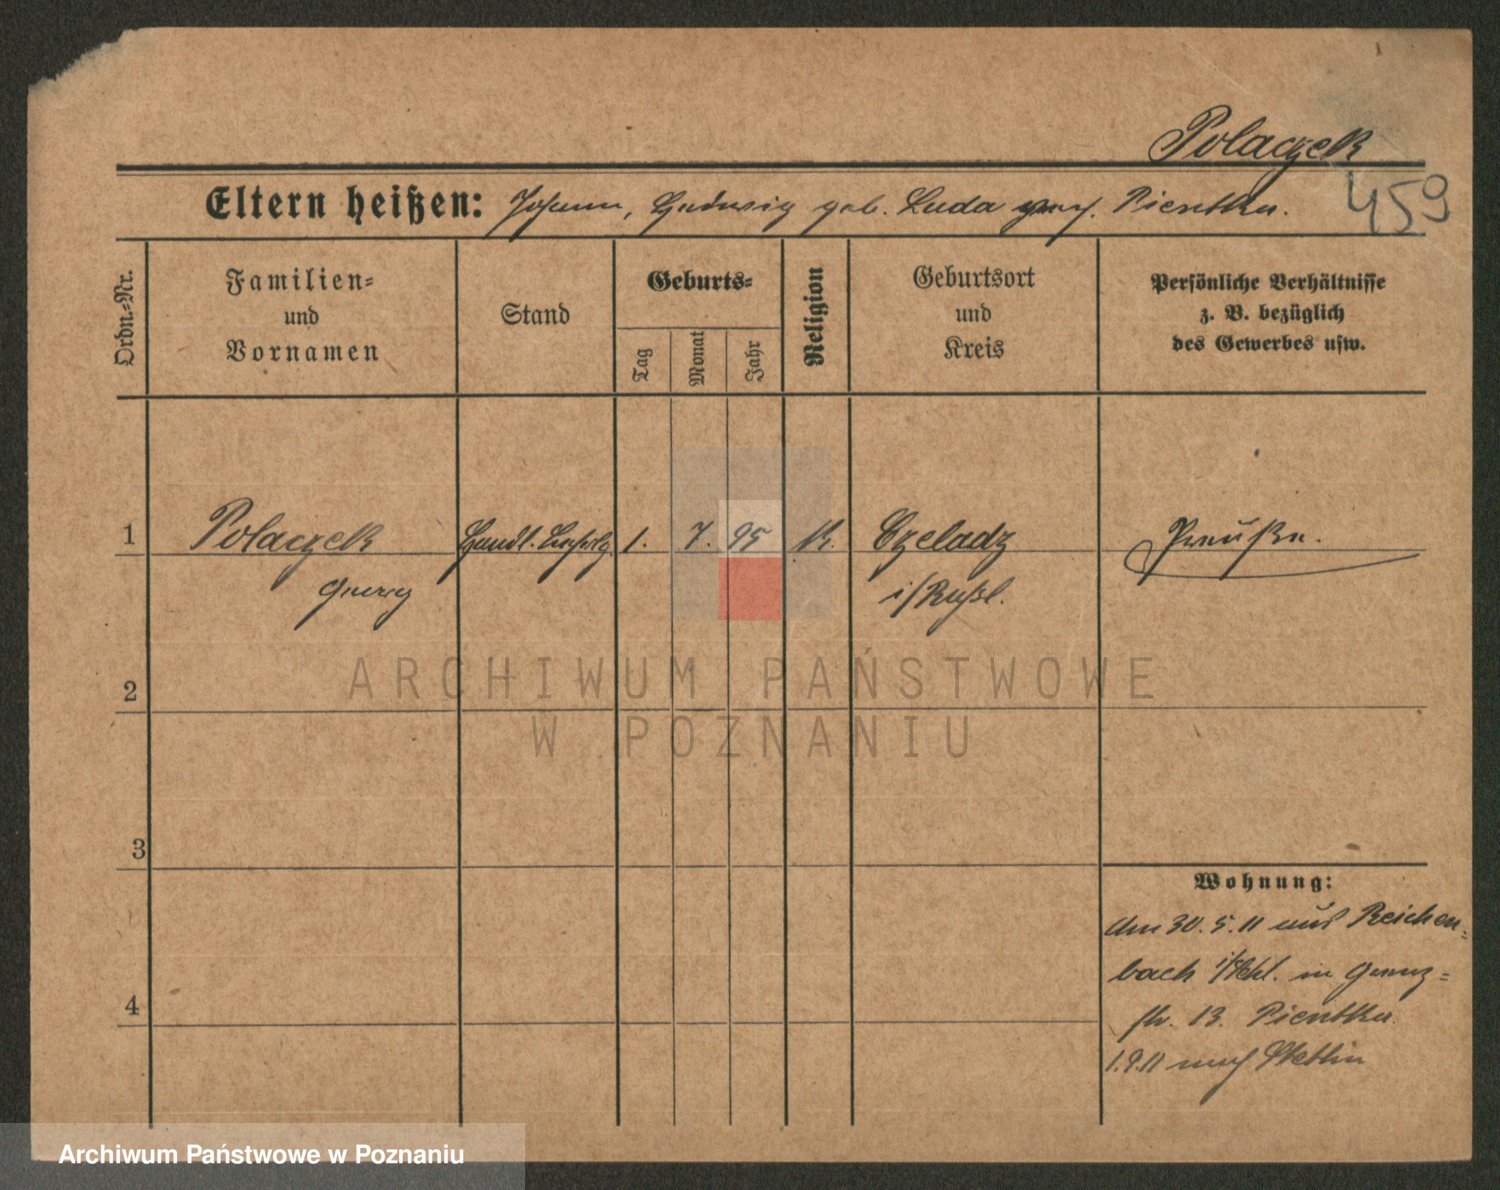 Polaczek
459
Eltern heißen: Johann, Hedwig geb. Duda Pientka.
Ordn.-Nr.
Familien-
und
Vornamen
Stand
Geburts-
Tag
Monat
Jahr
Religion
Geburtsort
und
Kreis
Persönliche Verhältnisse
z. B. bezüglich
des Gewerbes usw.
1 Polaczek Handl. Lehrlg. 1. 7. 95 K. Czeladz Preuße.
Georg i/Rußl.
2
3
4
Wohnung:
am 30.5.11 aus Reichen-
bach i/Schl. in
str. 13. Pientka.
1.9.11 nach Stettin
ARCHIWUM PAŃSTWOWE
W POZNANIU
Archiwum Państwowe w Poznaniu